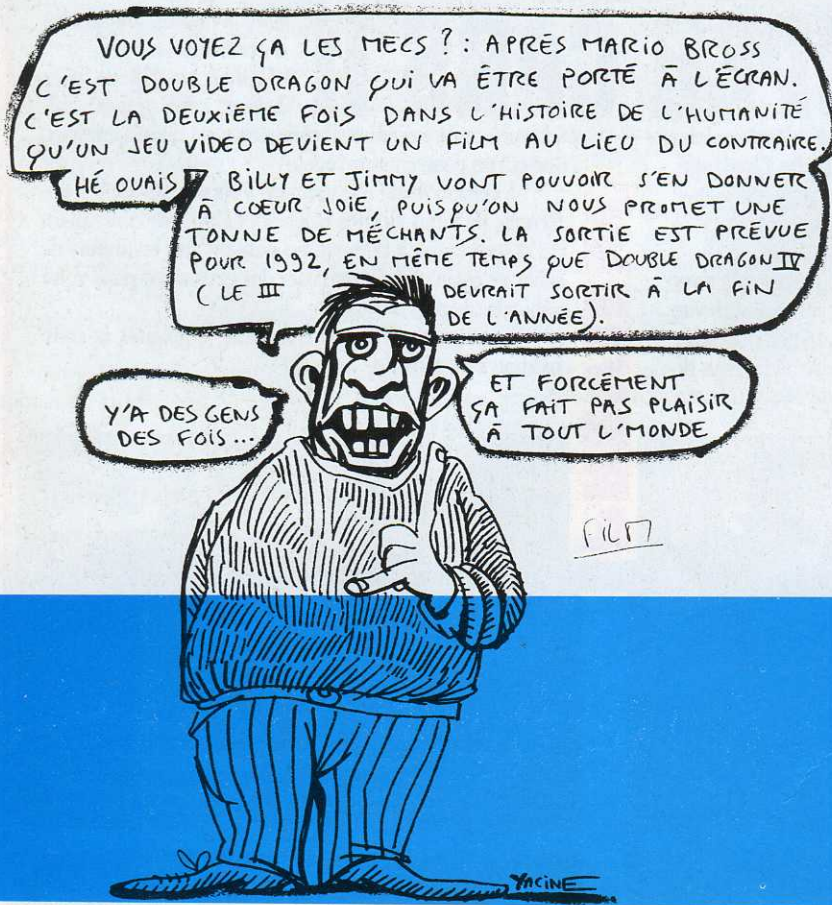 VOUS VOYEZ ÇA LES MECS ? : APRÈS MARIO BROSS
C'EST DOUBLE DRAGON QUI VA ÊTRE PORTÉ À L'ÉCRAN.
C'EST LA DEUXIÈME FOIS DANS L'HISTOIRE DE L'HUMANITÉ
QU'UN JEU VIDEO DEVIENT UN FILM AU LIEU DU CONTRAIRE.
HÉ OUAIS
BILLY ET JIMMY VONT POUVOIR S'EN DONNER
À COEUR JOIE, PUISQU'ON NOUS PROMET UNE
TONNE DE MÉCHANTS. LA SORTIE EST PRÉVUE
POUR 1992, EN MÊME TEMPS QUE DOUBLE DRAGON IV
(LE III DEVRAIT SORTIR À LA FIN
DE L'ANNÉE).
Y'A DES GENS
DES FOIS...
ET FORCÉMENT
ÇA FAIT PAS PLAISIR
À TOUT L'MONDE
FILM
YACINE